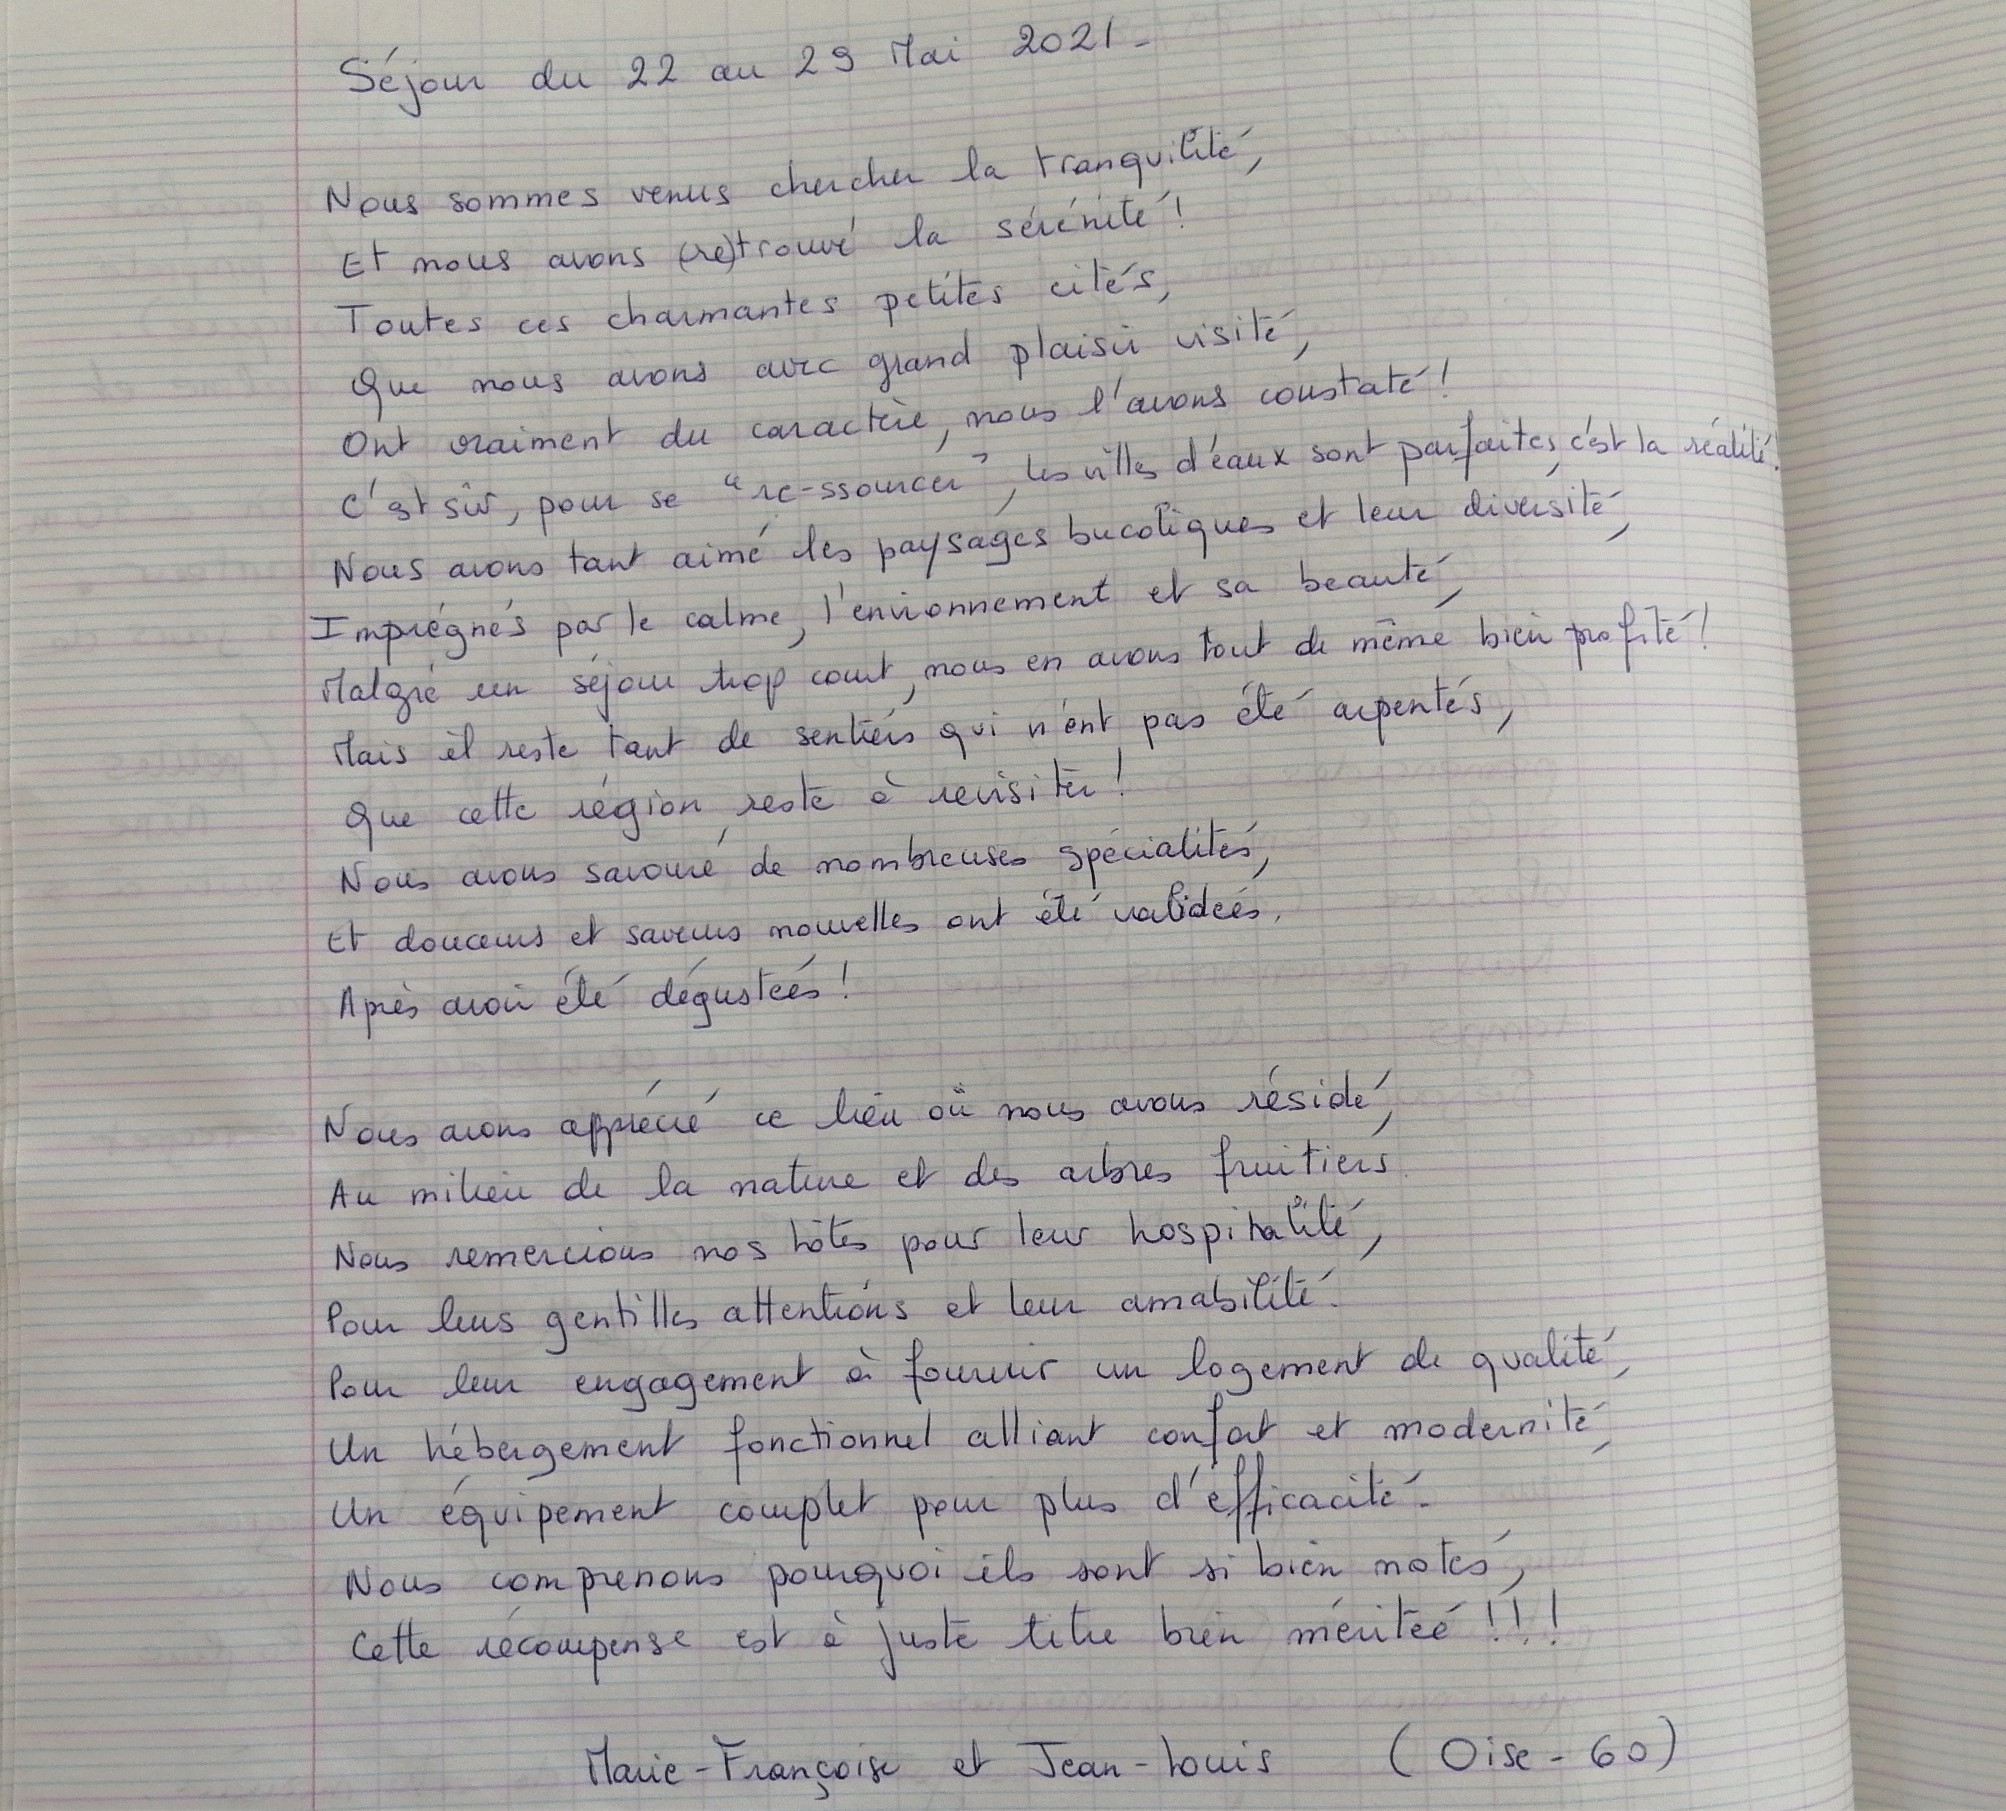 Séjour du 22 au 29 Mai 2021-
Nous sommes venus chercher la tranquilité,
Et nous avons (re)trouvé la sérénité !
Toutes ces charmantes petites cités,
Que nous avons avec grand plaisir visité,
Ont vraiment du caractère, nous l'avons constaté !
C'est sûr, pour se "re-ssourcer", les villes d'eaux sont parfaites, c'est la réalité !
Nous avons tant aimé les paysages bucoliques et leur diversité,
Imprégnés par le calme, l'environnement et sa beauté,
Malgré un séjour trop court, nous en avons tout de même bien profité !
Mais il reste tant de sentiers qui n'ont pas été arpentés,
Que cette région reste à revisiter !
Nous avons savouré de nombreuses spécialités,
Et douceurs et saveurs nouvelles ont été validées,
Après avoir été dégustées !
Nous avons apprécié ce lieu où nous avons résidé,
Au milieu de la nature et des arbres fruitiers.
Nous remercions nos hôtes pour leur hospitalité,
Pour leurs gentilles attentions et leur amabilité.
Pour leur engagement à fournir un logement de qualité,
Un hébergement fonctionnel alliant confort et modernité,
Un équipement complet pour plus d'efficacité.
Nous comprenons pourquoi ils sont si bien notés,
Cette récompense est à juste titre bien méritée !!!
Marie-Françoise et Jean-Louis (Oise-60)